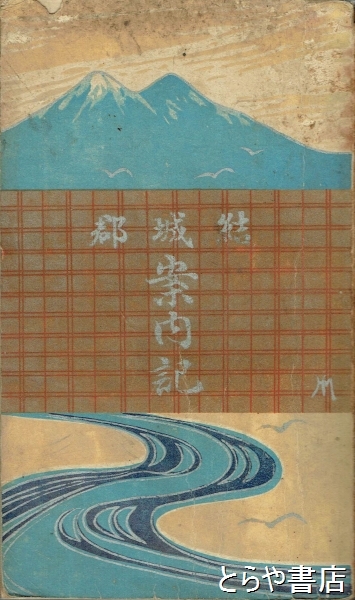 結城郡
案内記
とらや書店